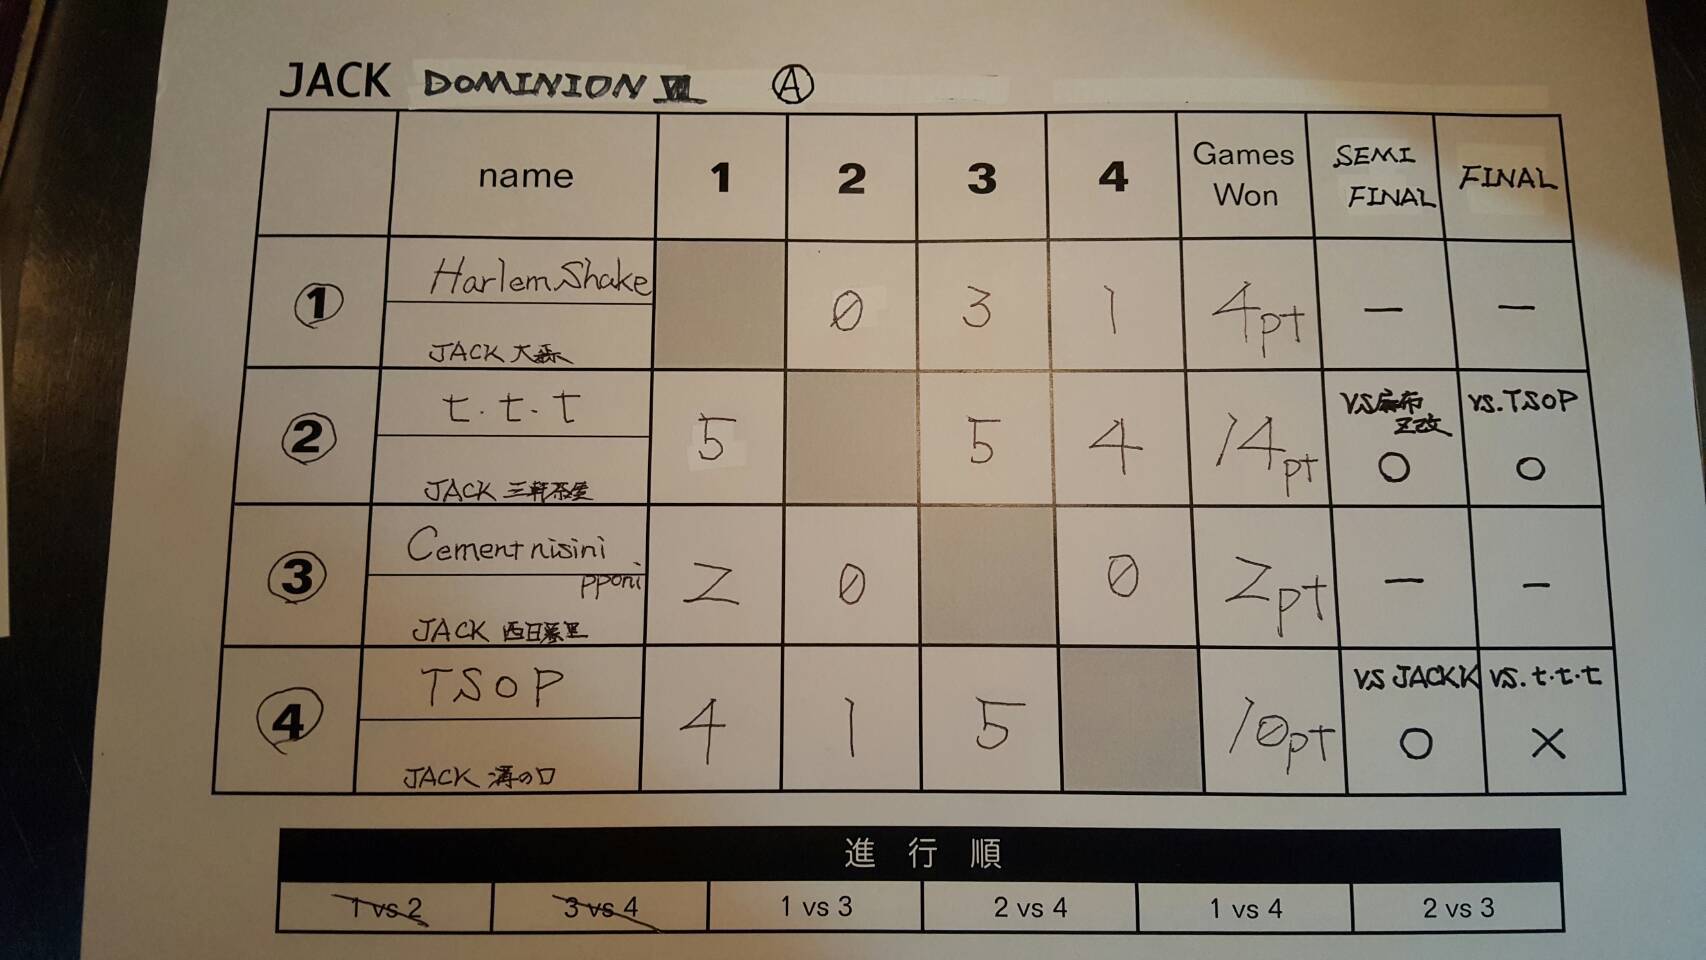 JACK DOMINION Ⅶ Ⓐ
name 1 2 3 4 Games Won SEMI FINAL FINAL
① Harlem Shake 0 3 1 4pt — —
JACK 大森
② t.t.t 5 5 4 14pt vs麻布Z改 ○ vs.TSOP ○
JACK 三軒茶屋
③ Cement nisini pponi 2 0 0 2pt — —
JACK 西日暮里
④ TSOP 4 1 5 10pt vs JACKK ○ vs.t.t.t ×
JACK 溝の口
進行順
1 vs 2 3 vs 4 1 vs 3 2 vs 4 1 vs 4 2 vs 3